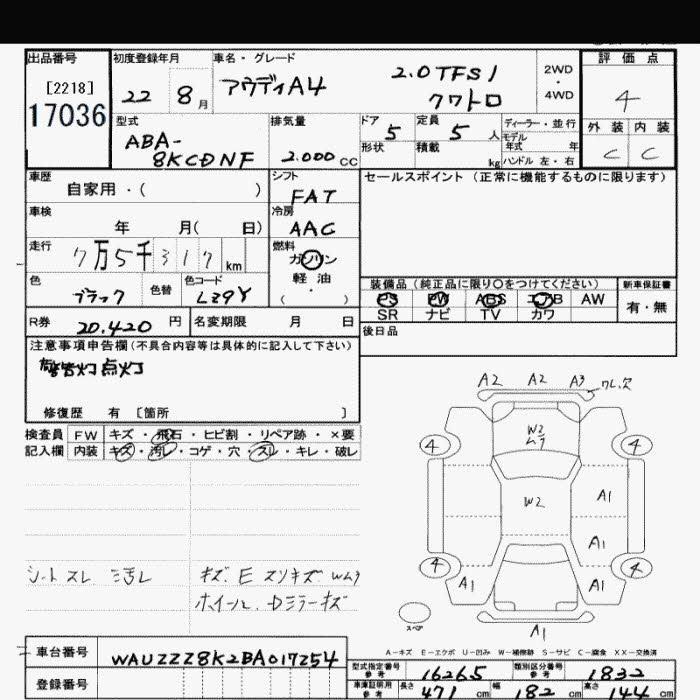 出品番号
[2218]
17036
初度登録年月
22 8月
車名・グレード
アウディA4
2.0TFSI
クワトロ
2WD
・
4WD
評価点
4
外装 内装
C C
型式
ABA-
8KCDNF
排気量
2.000cc
ドア 5
定員 5人
形状
積載 kg
ディーラー・並行
モデル
年式 年
ハンドル 左・右
車歴
自家用・( )
シフト
FAT
車検
年 月( 日)
冷房
AAC
走行
7万5千317km
燃料
ガソリン
軽油
( ・ )
色
ブラック
色替
色コード
LZ9Y
R券 20.420円
名変期限 月 日
セールスポイント(正常に機能するものに限ります)
装備品(純正品に限り○をつけてください)
PS PW ABS エアB AW
SR ナビ TV カワ
新車保証書
有・無
後日品
注意事項申告欄(不具合内容等は具体的に記入して下さい)
警告灯点灯
修復歴 有 [箇所 ]
検査員 FW キズ・飛石・ヒビ割・リペア跡・×要
記入欄 内装 キズ・汚レ・コゲ・穴・スレ・キレ・破レ
シートスレ 汚レ
キズ.E スリキズ Wムラ
ホイール.Dミラーキズ
A2 A2 A3 ワレ.穴
W2
ムラ
4 4
W2
A1
A1
4 4
A1 A1
スペア
A1
A-キズ E-エクボ U-凹み W-補修跡 S-サビ C-腐食 XX-交換済
車台番号
WAUZZZ8K2BA017254
登録番号
型式指定番号
参考
16265
類別区分番号
参考
1832
車庫証明用
参考
長さ 471cm
幅 182cm
高さ 144cm